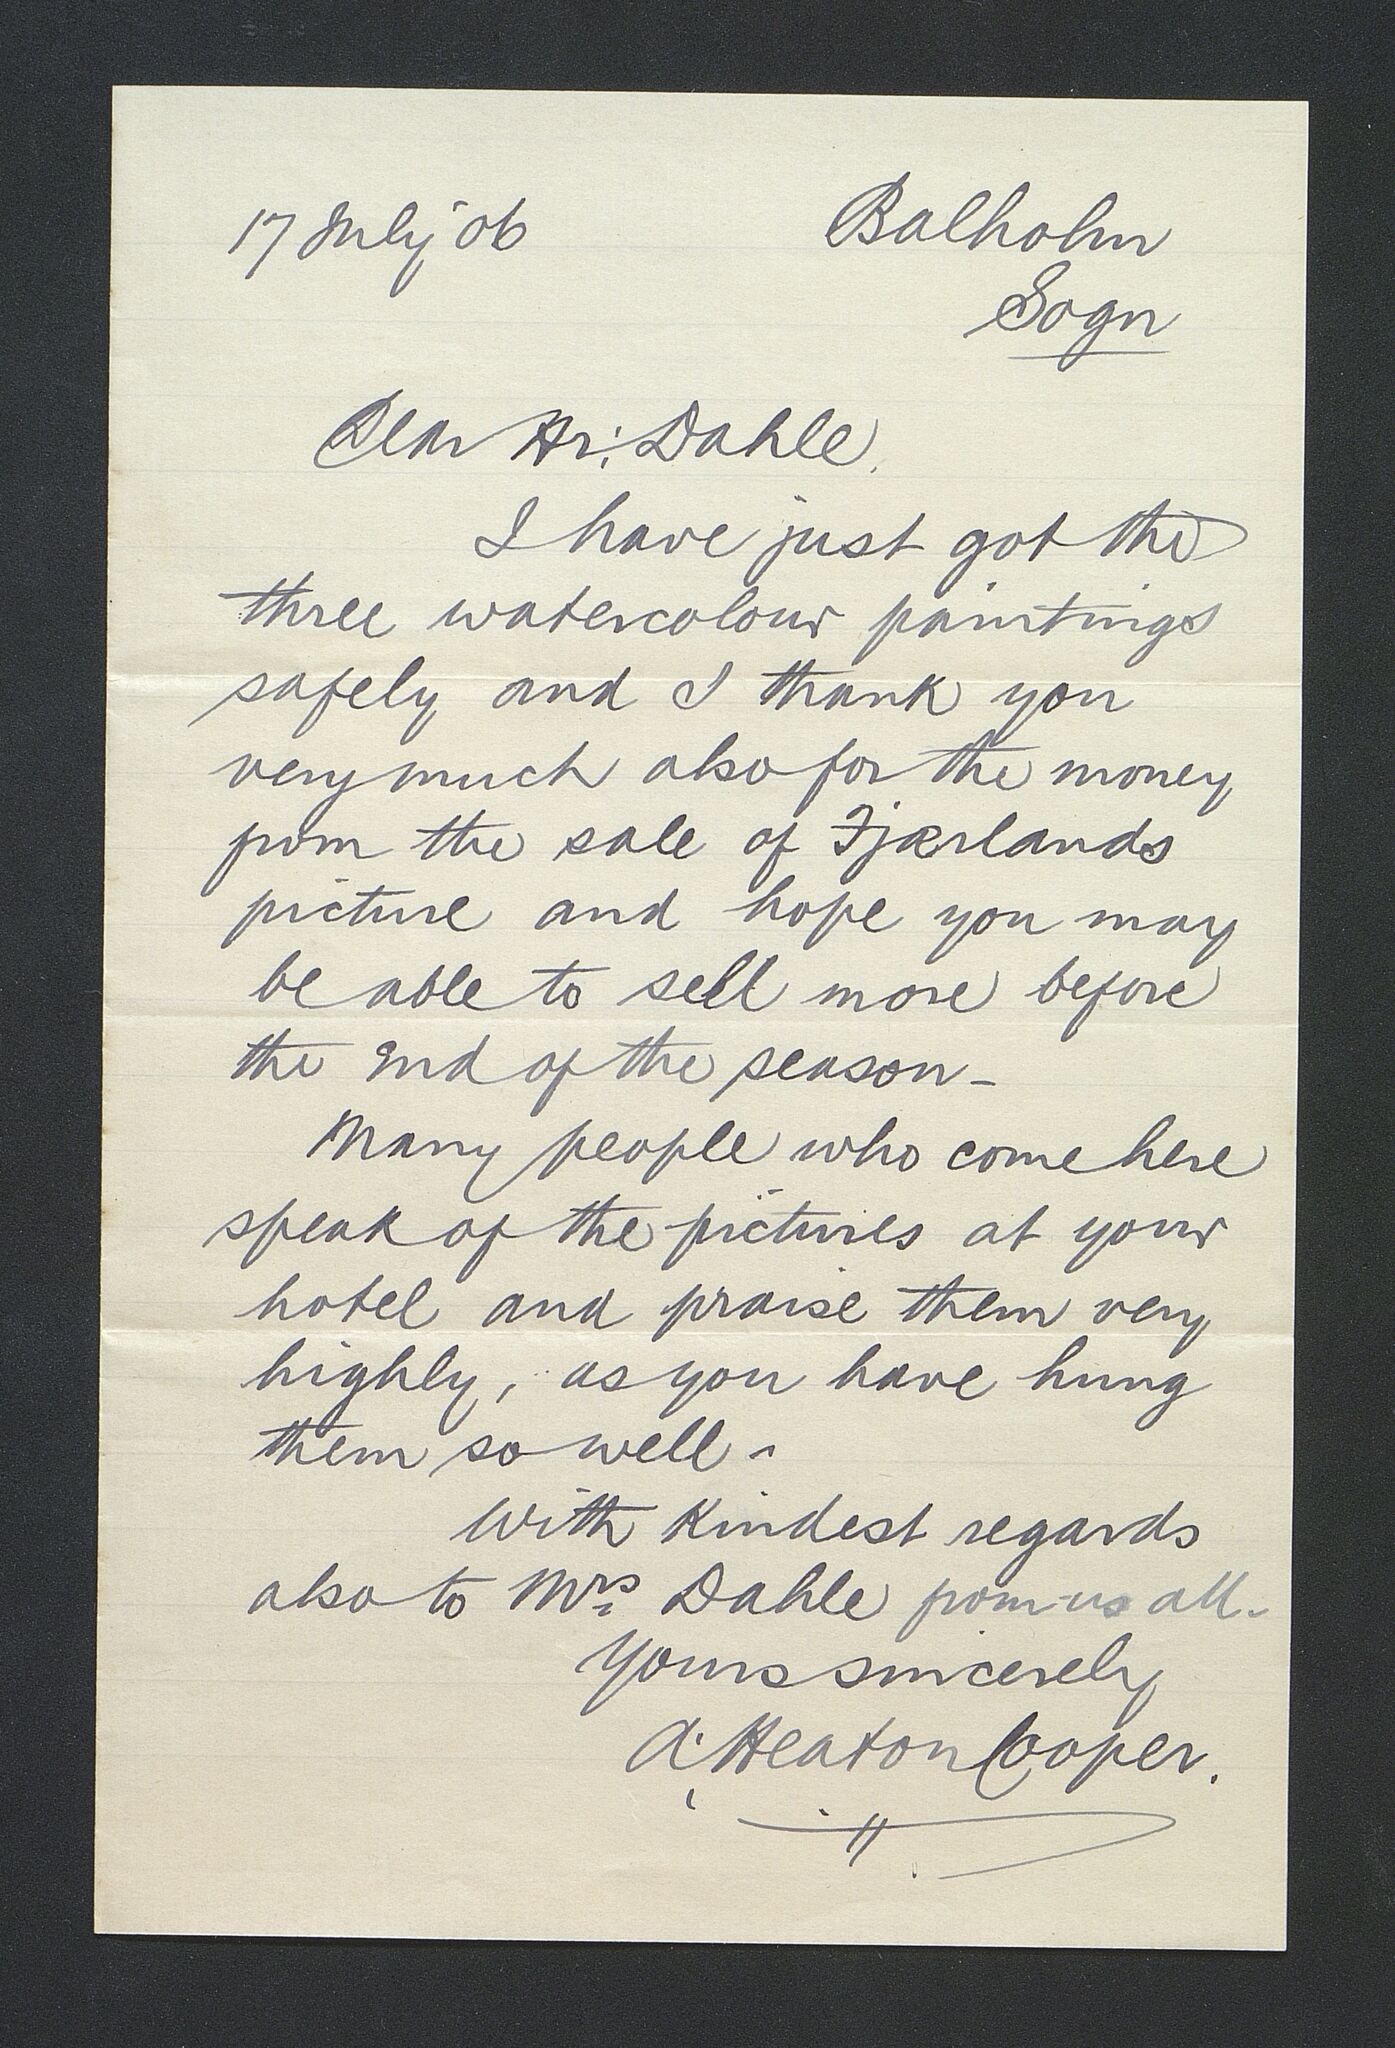 17 July '06
Balholm
Sogn
Dear Hr. Dahle.
I have just got the
three watercolour paintings
safely and I thank you
very much also for the money
from the sale of Fjærlands
picture and hope you may
be able to sell more before
the end of the season -
Many people who come here
speak of the pictures at your
hotel and praise them very
highly, as you have hung
them so well -
With kindest regards
also to Mrs. Dahle from us all -
Yours sincerely
A. Heaton Cooper.